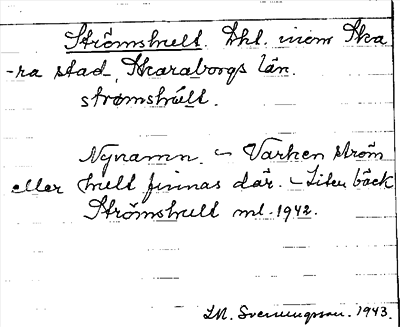 Strömshult. Lht. inom Ska
-ra stad, Skaraborgs län.
strømshúlt.
Nynamn. – Varken ström
eller hult finnas där. – Liten bäck
Strömshult ml. 1942.
I.M. Svenungsson. 1943.